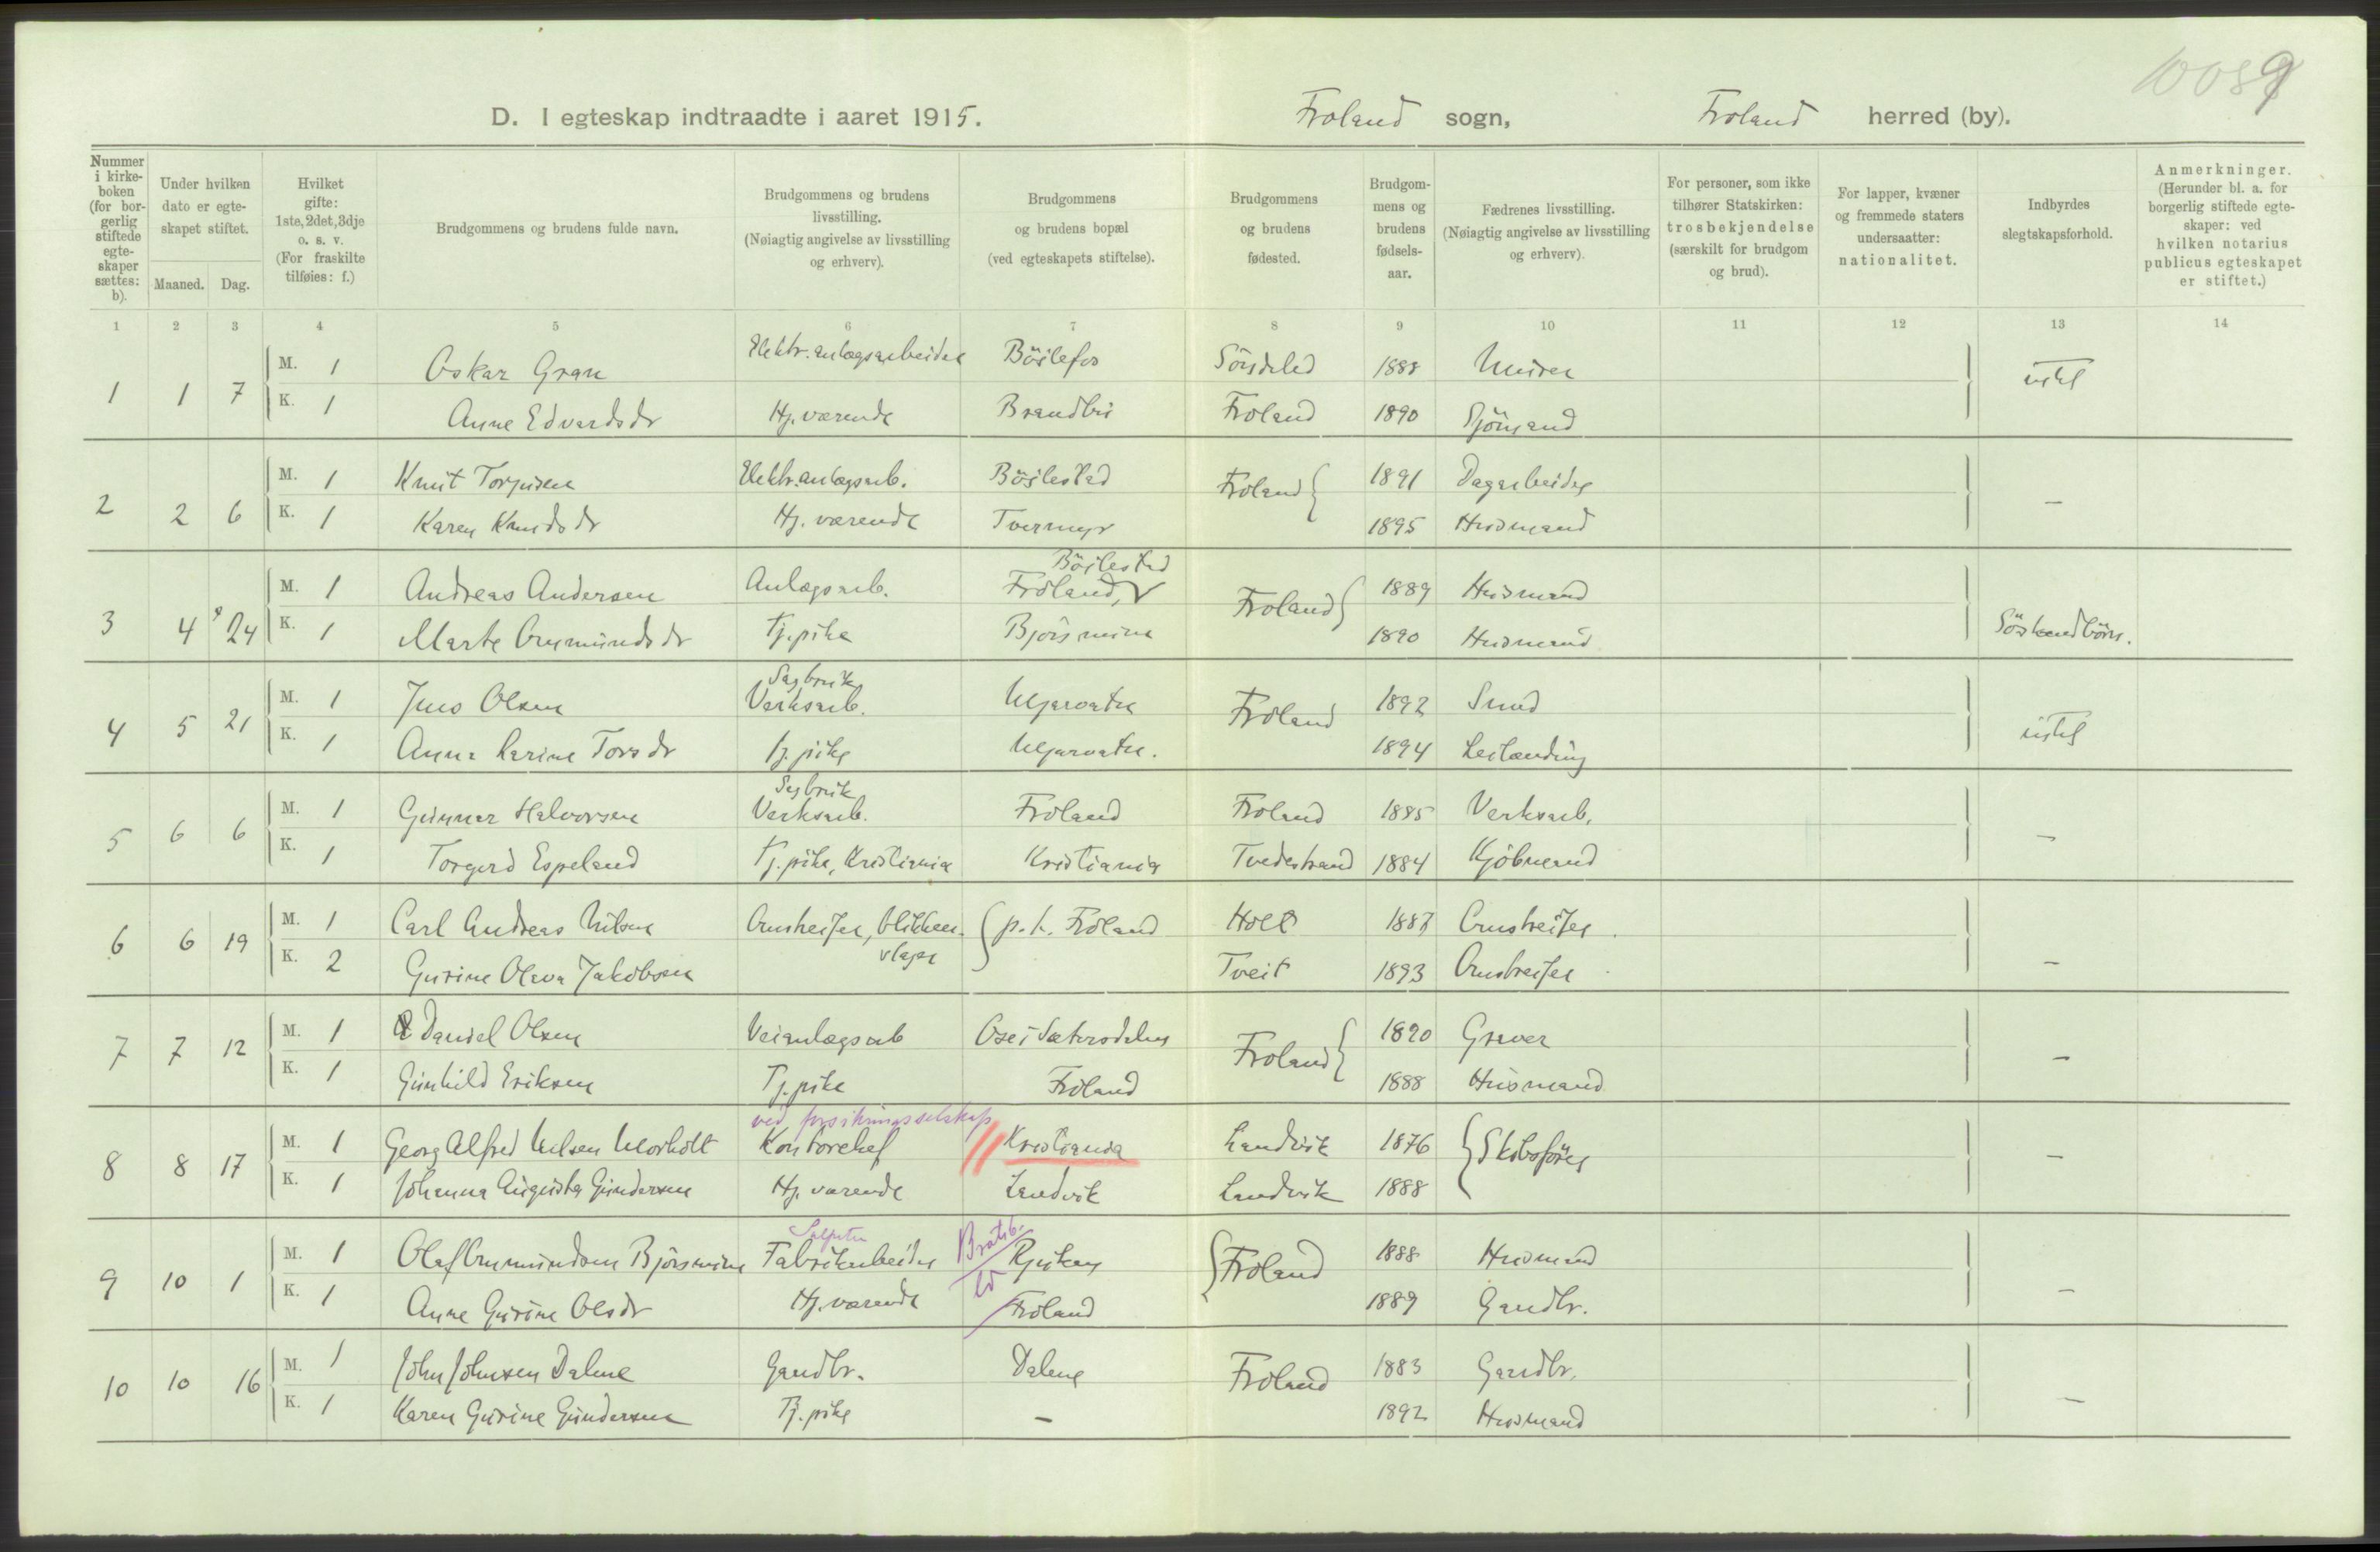 10089
D. I egteskap indtraadte i aaret 1915. Froland sogn, Froland herred (by).
Nummer i kirkeboken (for borgerlig stiftede egteskaper sættes: b).
Under hvilken dato er egteskapet stiftet.
Maaned. Dag.
Hvilket gifte: 1ste, 2det, 3dje o. s. v. (For fraskilte tilføies: f.)
Brudgommens og brudens fulde navn.
Brudgommens og brudens livsstilling. (Nøiagtig angivelse av livsstilling og erhverv).
Brudgommens og brudens bopæl (ved egteskapets stiftelse).
Brudgommens og brudens fødested.
Brudgommens og brudens fødselsaar.
Fædrenes livsstilling. (Nøiagtig angivelse av livsstilling og erhverv).
For personer, som ikke tilhører Statskirken: trosbekjendelse (særskilt for brudgom og brud).
For lapper, kvæner og fremmede staters undersaatter: nationalitet.
Indbyrdes slegtskapsforhold.
Anmerkninger. (Herunder bl. a. for borgerlig stiftede egteskaper: ved hvilken notarius publicus egteskapet er stiftet.)
1 2 3 4 5 6 7 8 9 10 11 12 13 14
1 1 7 M. 1 Oskar Gran Elektr. anlægsarbeider Böilefos Söndeled 1888 Murer
K. 1 Anne Edvardsdr Hj. værende Froland 1890 Sjömand
2 2 6 M. 1 Knut Torjusen Elektr. anlægsarb. Böilestad Froland 1891 Dagarbeider —
K. 1 Karen Knudsdr Hj. værende Tvermyr 1895 Husmand
Böilestad
3 4 24 M. 1 Andreas Andersen Anlægsarb. Froland, Froland 1889 Husmand
K. 1 Marte Omundsdr Tj. pike Bjorsmine 1890 Husmand Söskendbörn.
Sagbruk
4 5 21 M. 1 Jens Olsen Verksarb. Froland 1892 Smed
K. 1 Anna Karine Torsdr Tj. pike 1894 Leilænding
Sagbruk
5 6 6 M. 1 Gunnar Halvorsen Verksarb. Froland Froland 1885 Verksarb. —
K. 1 Torgerd Espeland Tj. pike, Kristiania Kristiania Tvedestrand 1884 Kjöbmand
6 6 19 M. 1 Carl Andreas Nilsen Omstreifer, blikkenslager p. t. Froland Holt 1887 Omstreifer.
K. 2 Gurine Oleva Jakobsen Tveit 1893 Omstreifer —
7 7 12 M. 1 Daniel Olsen Veianlægsarb Ose i Sætersdalen Froland 1890 Graver —
K. 1 Gunhild Eriksen Tj. pike Froland 1888 Husmand
ved forsikringsselskap
8 8 17 M. 1 Georg Alfred Nilsen Morholt Kontorchef Kristiania Landvik 1876 Skibsförer —
K. 1 Johanna Augusta Gundersen Hj. værende Landvik Landvik 1888
Salpeter
9 10 1 M. 1 Olaf Omundsen Bjorsmine Fabrikarbeider Rjukan Froland 1888 Husmand
K. 1 Anne Gurine Olsdr Hj. værende Froland 1889 Gaardbr. —
10 10 16 M. 1 John Johnsen Dalene Gaardbr. Dalene Froland 1883 Gaardbr.
K. 1 Karen Gurine Gundersen Tj. pike — 1892 Husmand —